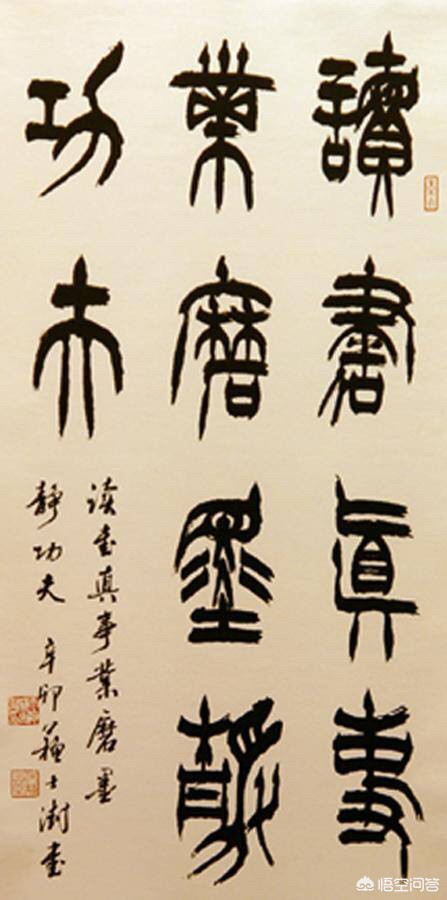 讀書真事
業磨墨靜
功夫
读书真事业磨墨
静功夫 辛卯 苏士澍书
悟空问答